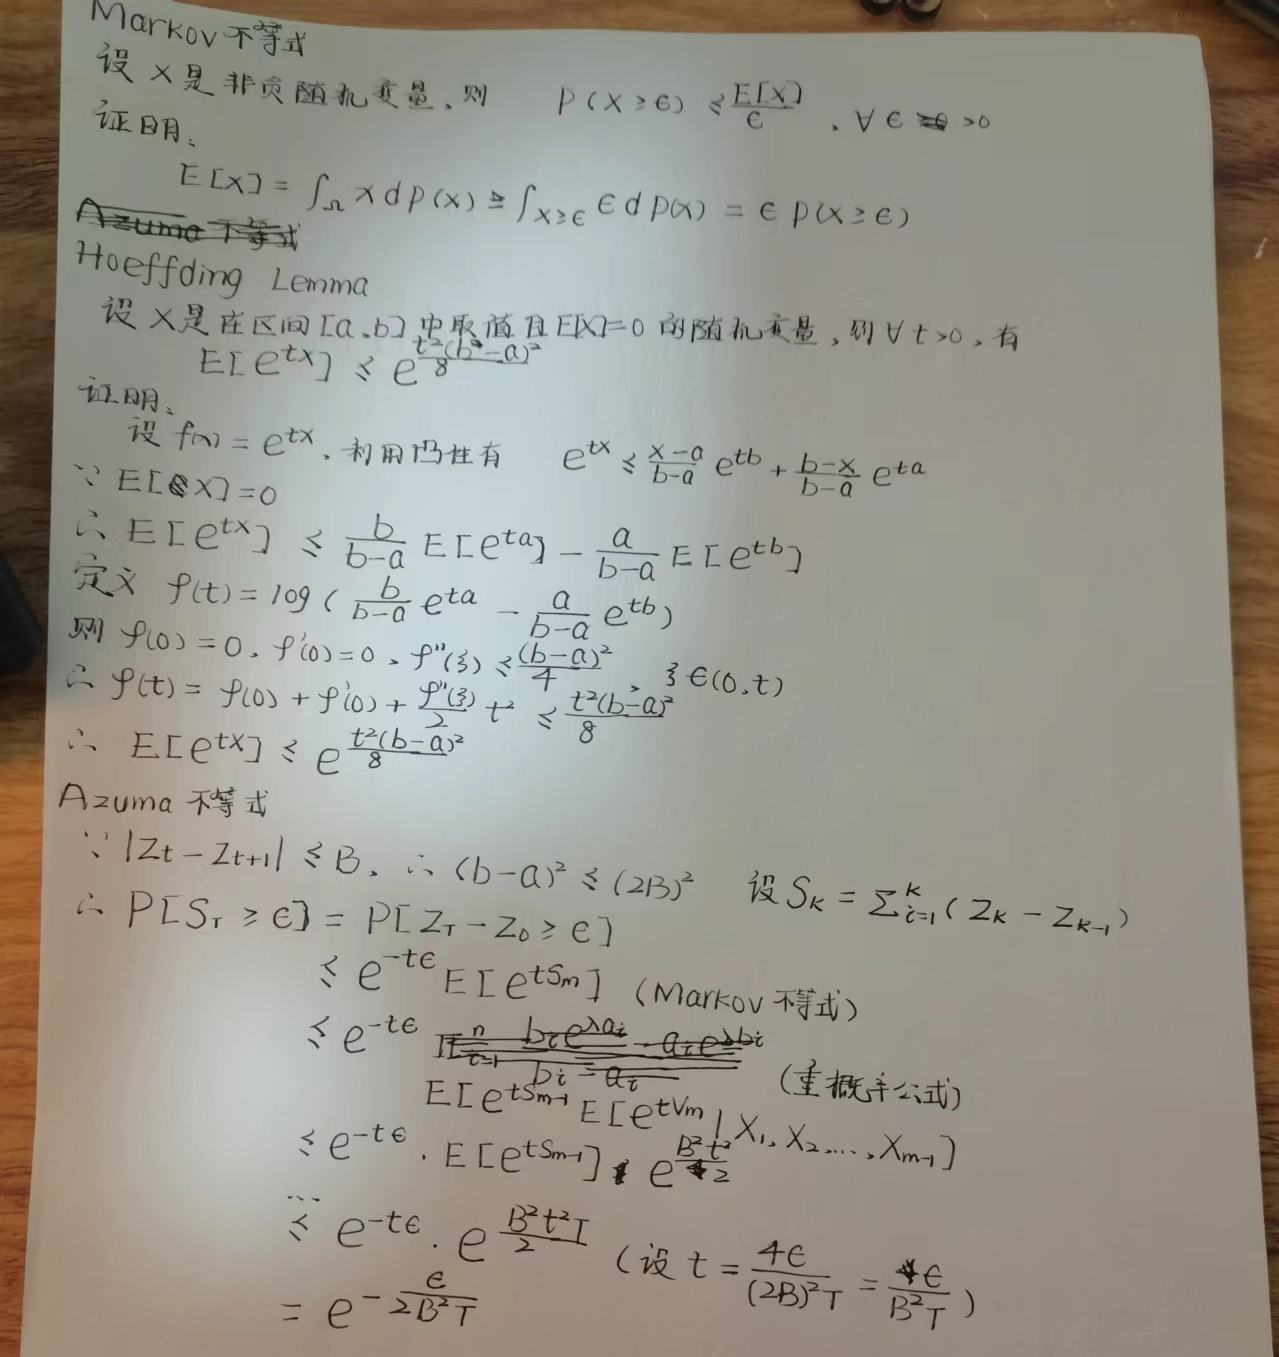 Markov 不等式
设 X是非负随机变量,则 P(X≥ϵ) ≤ E[X]/ϵ , ∀ϵ >0
证明:
E[X] = ∫_Ω x dp(x) ≥ ∫_{X≥ϵ} ϵ dp(x) = ϵ p(x≥ϵ)
Azuma 不等式
Hoeffding Lemma
设 X是在区间[a,b]中取值且E[X]=0的随机变量,则∀t>0,有
E[e^{tx}] ≤ e^{t²(b-a)²/8}
证明:
设 f(x) = e^{tx}, 利用凸性有 e^{tx} ≤ (x-a)/(b-a) e^{tb} + (b-x)/(b-a) e^{ta}
∵ E[X]=0
∴ E[e^{tx}] ≤ b/(b-a) E[e^{ta}] - a/(b-a) E[e^{tb}]
定义 φ(t) = log( b/(b-a) e^{ta} - a/(b-a) e^{tb})
则 φ(0)=0, φ'(0)=0, φ''(ξ) ≤ (b-a)²/4, ξ∈(0,t)
∴ φ(t) = φ(0) + φ'(0) + φ''(ξ)/2 t² ≤ t²(b-a)²/8
∴ E[e^{tx}] ≤ e^{t²(b-a)²/8}
Azuma 不等式
∵ |Z_t - Z_{t+1}| ≤ B, ∴ (b-a)² ≤ (2B)² 设 S_K = Σ_{i=1}^K (Z_K - Z_{K-1})
∴ P[S_T ≥ ϵ] = P[Z_T - Z_0 ≥ ϵ]
≤ e^{-tϵ} E[e^{tS_m}] (Markov 不等式)
≤ e^{-tϵ} Π_{i=1}^n (b_i e^{λa_i} - a_i e^{λb_i})/(b_i - a_i) (重概率公式)
E[e^{tS_{m-1}} E[e^{tV_m} | X_1, X_2, ..., X_{m-1}]
≤ e^{-tϵ} · E[e^{tS_{m-1}}] · e^{B²t²/2}
...
≤ e^{-tϵ} · e^{B²t²T/2} (设 t = 4ϵ/((2B)²T) = ϵ/(B²T))
= e^{-ϵ/(2B²T)}